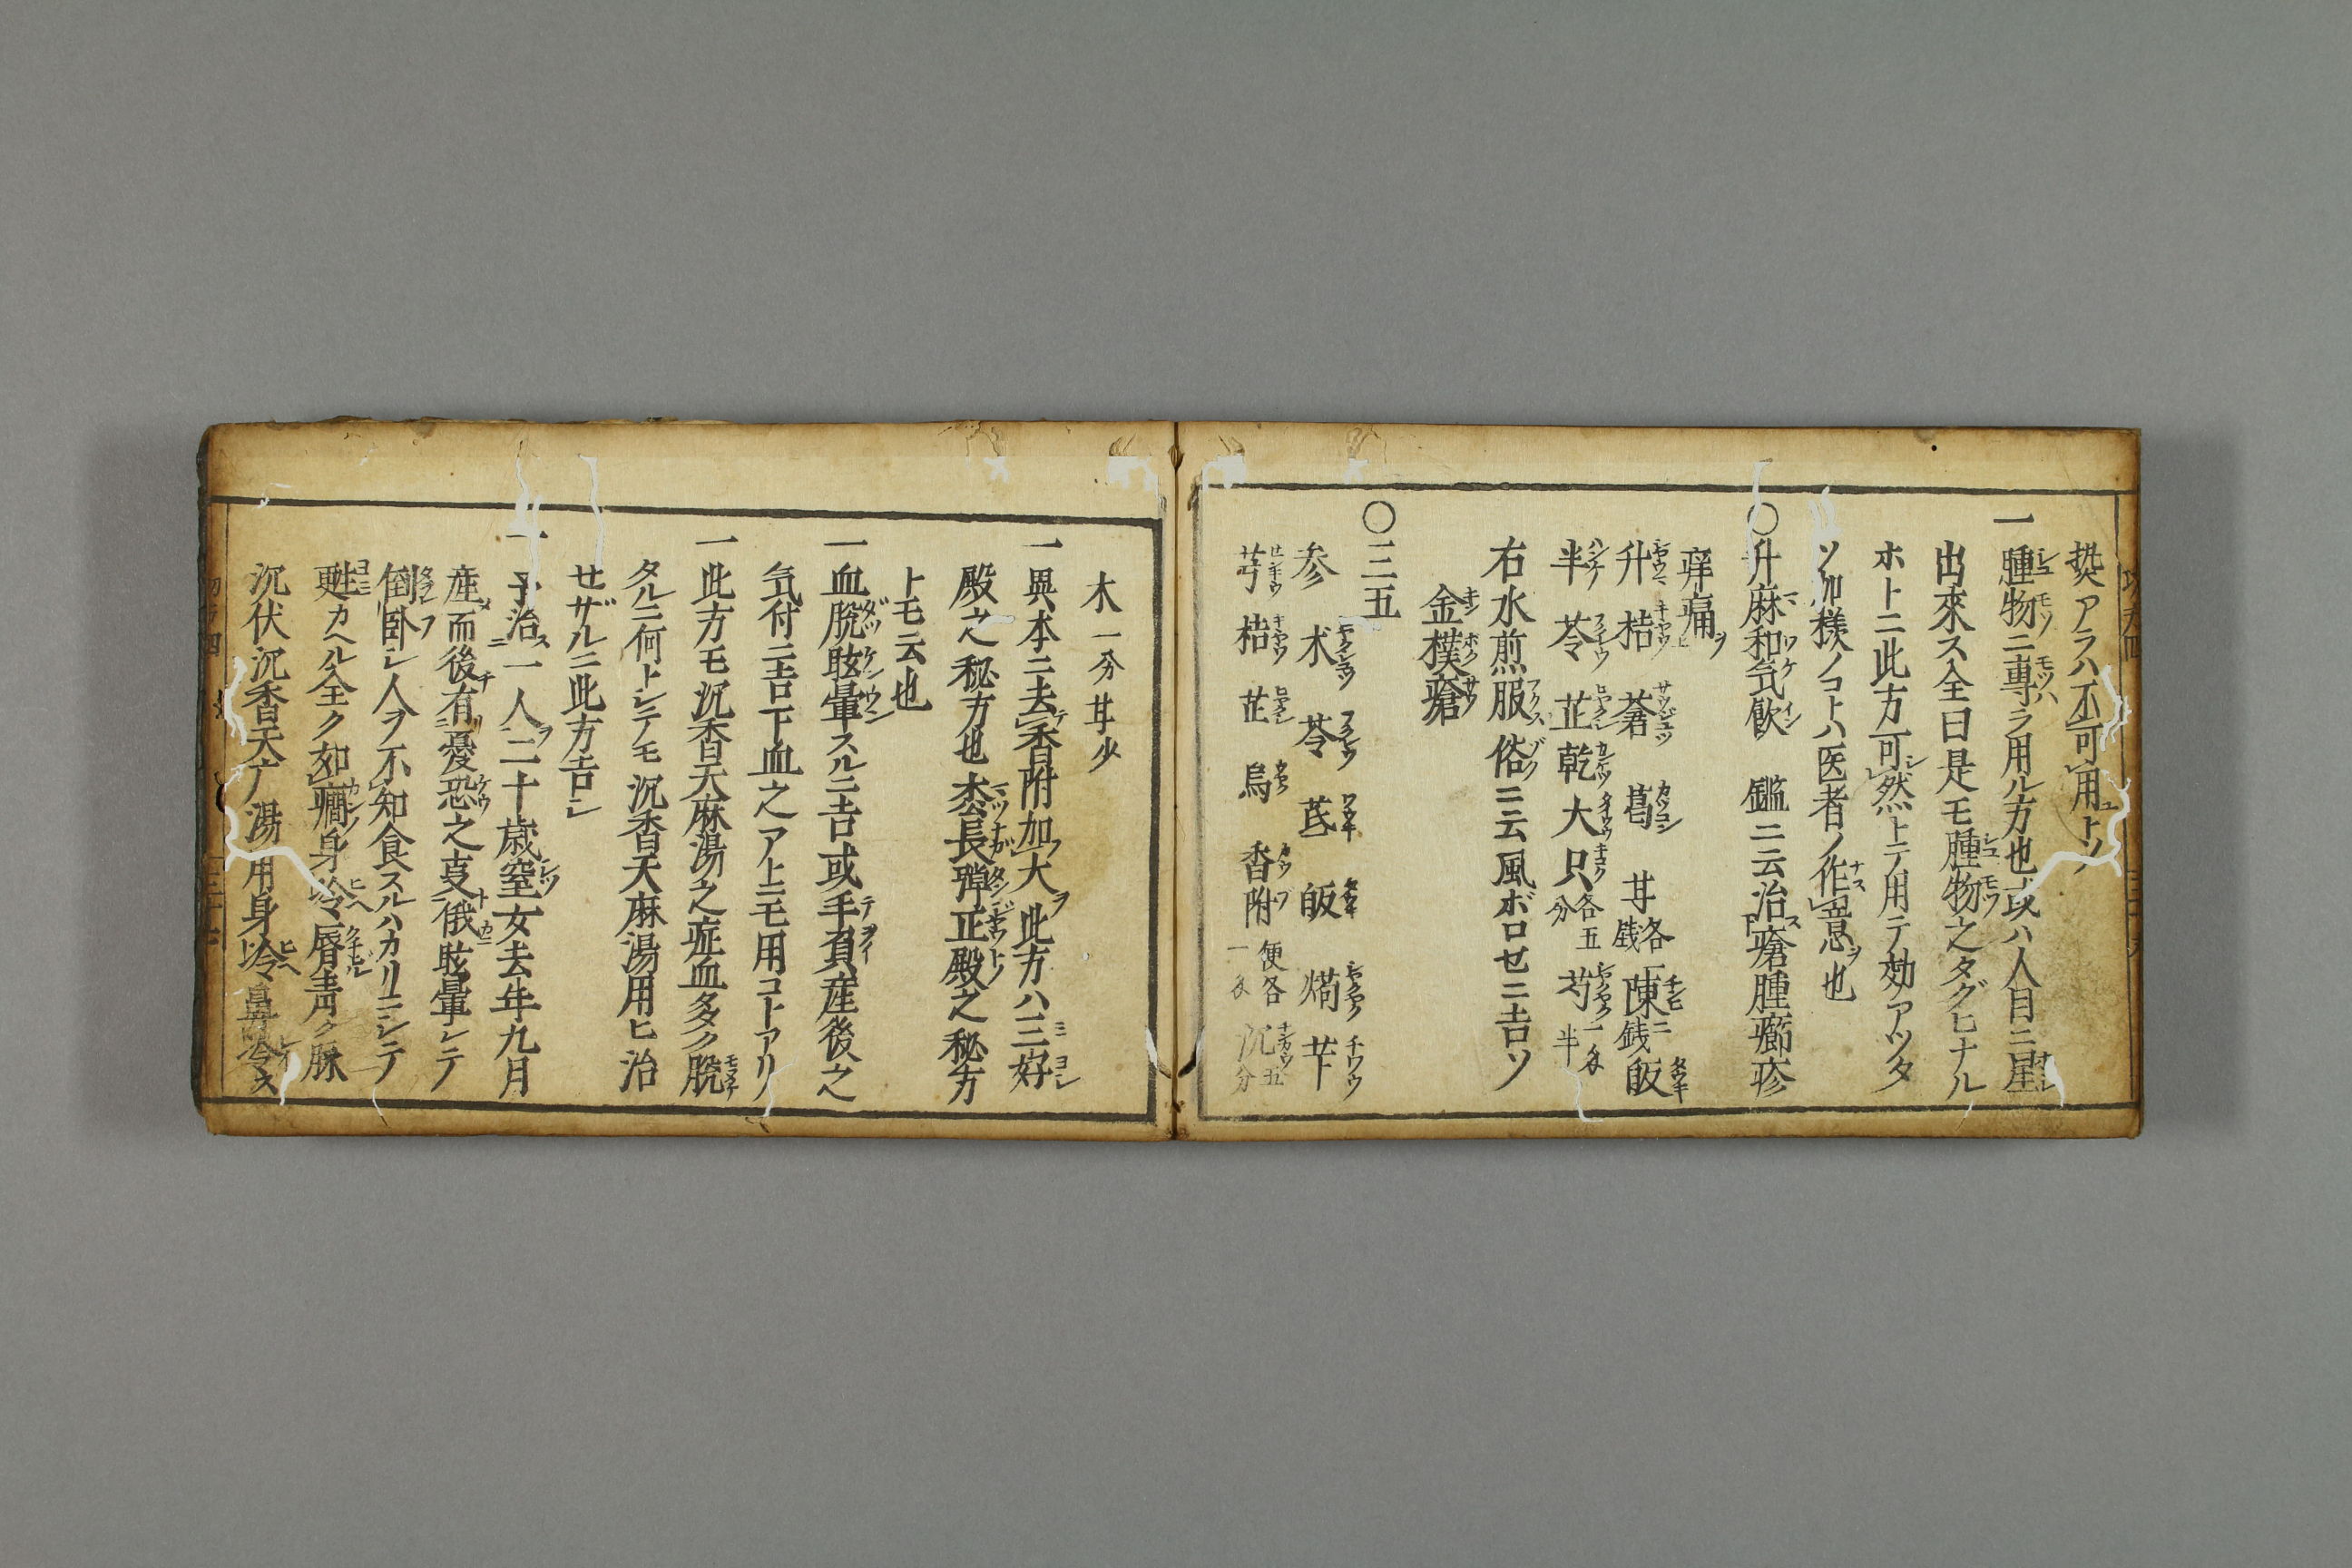 アラハ不可用トソ
一腫物ニ専ラ用ル方也或ハ人目ニ星
出來ス全曰是モ腫物之タグヒナル
ホトニ此方可然トテ用テ効アツタ
ソ加様ノコトハ医者ノ作意也
〇升麻和気飲 鑑ニ云治瘡腫癤疹
痒痛
升 桔 蒼 葛 甘各一銭 陳二銭 皈
半 苓 芷 乾 大 只各五分 芍一匁半
右水煎服俗ニ云風ボロセニ吉ソ
金撲瘡
〇三五
参 朮 苓 芪 皈 熇 芐
芎 桔 芷 烏 香附 便各一匁 沉五分
木一分 甘少
一異本ニ去香附加大此方ハ三好
殿之秘方也 長弾正殿之秘方
トモ云也
一血脱眩暈スルニ吉或手負産後之
気付ニ吉下血之アトニモ用コトアリ
一此方モ沉香天麻湯之症血多ク脱
タルニ何トシテモ沉香天麻湯用ヒ治
せザルニ此方吉シ
一予治一人二十歳室女去年九月
産而後有憂恐之変俄眩暈シテ
倒卧シ人ヲ不知食スルハカリニシテ
甦カヘル全ク如癇身冷唇青ク脉
沉伏沉香天广湯用身冷鼻冷ス